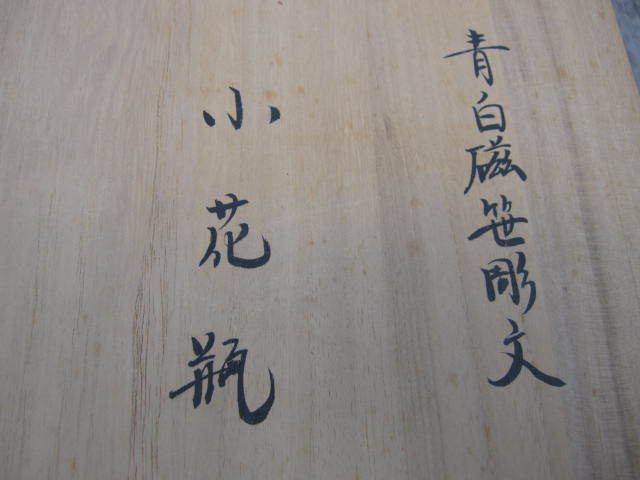 青白磁笹彫文
小花瓶